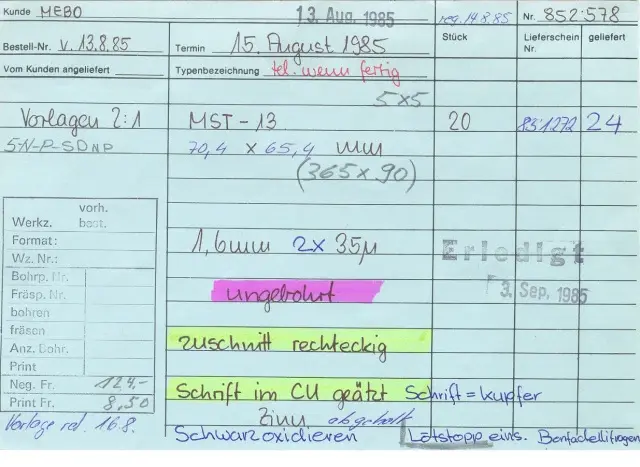 Kunde MEBO 13. Aug. 1985 reg. 14.8.85 Nr. 852.578
Bestell-Nr. v. 13.8.85 Termin 15. August 1985 Stück Lieferschein Nr. geliefert
Vom Kunden angeliefert Typenbezeichnung tel. wenn fertig
5x5
Vorlagen 2:1 MST-13 20 83.1272 24
5N-P-SDNP 70,4 x 65,4 mm
(365 x 90)
vorh.
Werkz. best.
Format:
Wz. Nr.:
1,6mm 2x 35µ
Erledigt
Bohrp. Nr.
Fräsp. Nr.
ungebohrt
3. Sep. 1985
bohren
fräsen
Anz. Bohr.
zuschnitt rechteckig
Print
Neg. Fr. 124,-
Print Fr. 8,50
Schrift im CU geätzt Schrift = Kupfer
Vorlage ret. 16.8.
Zinn abgeholt
Schwarzoxidieren Lötstopp eins.